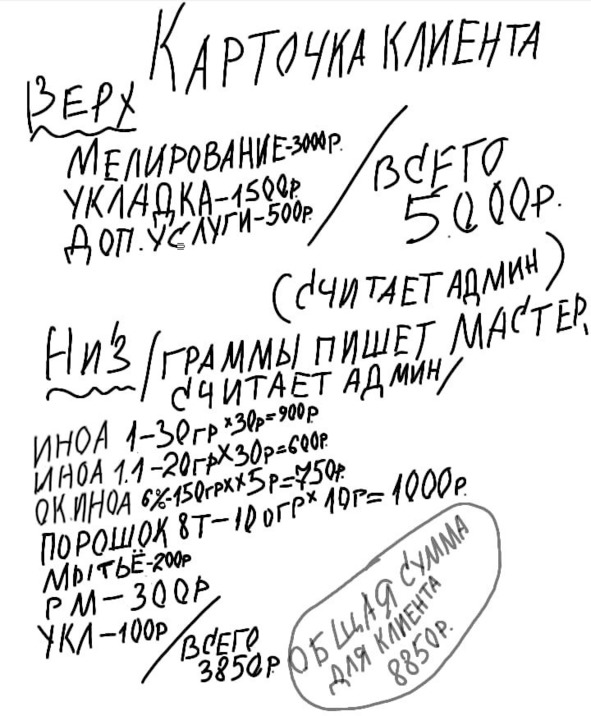 КАРТОЧКА КЛИЕНТА
ВЕРХ
МЕЛИРОВАНИЕ-3000Р.
УКЛАДКА-1500Р.
ДОП.УСЛУГИ-500Р.
ВСЕГО
5000Р.
(СЧИТАЕТ АДМИН)
НИЗ/ГРАММЫ ПИШЕТ МАСТЕР,
СЧИТАЕТ АДМИН/
ИНОА 1-30ГР×30Р=900Р
ИНОА 1.1-20ГР×30Р=600Р.
ОК.ИНОА 6%-150ГР××5Р=750Р.
ПОРОШОК 8Т-100ГР×10Р=1000Р.
МЫТЬЁ-200Р
РМ-300Р
УКЛ-100Р
ВСЕГО
3850Р
ОБЩАЯ СУММА
ДЛЯ КЛИЕНТА
8850Р.